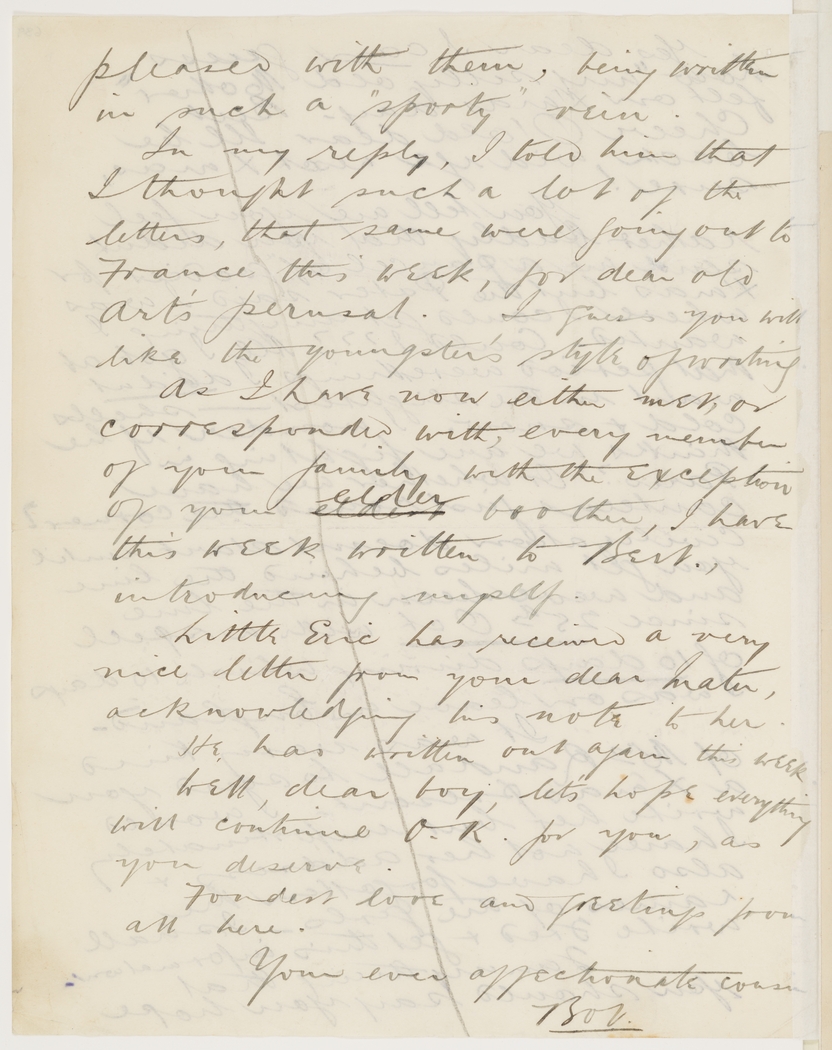 pleased with them, being written
in such a "sporty" vein.
In my reply, I told him that
I thought such a lot of the
letters, that same were going out to
France this week, for dear old
Art's perusal. I guess you will
like the youngster's style of writing
As I have now either met, or
corresponded with, every member
of your family with the exception
of your eldest elder brother, I have
this week written to Bert.,
introducing myself.
Little Eric has received a very
nice letter from your dear Mater,
acknowledging his note to her.
He has written out again this week
Well, dear boy, let's hope everything
will continue O.K. for you, as
you deserve.
Fondest love and greetings from
all here.
Your ever affectionate cousin
Bob.